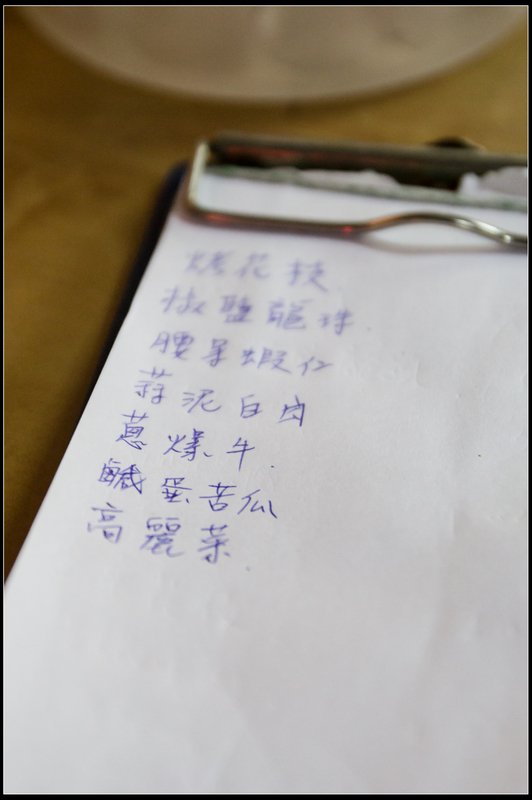 烤花枝
椒鹽龍珠
腰果蝦仁
蒜泥白肉
蔥爆牛
鹹蛋苦瓜
高麗菜